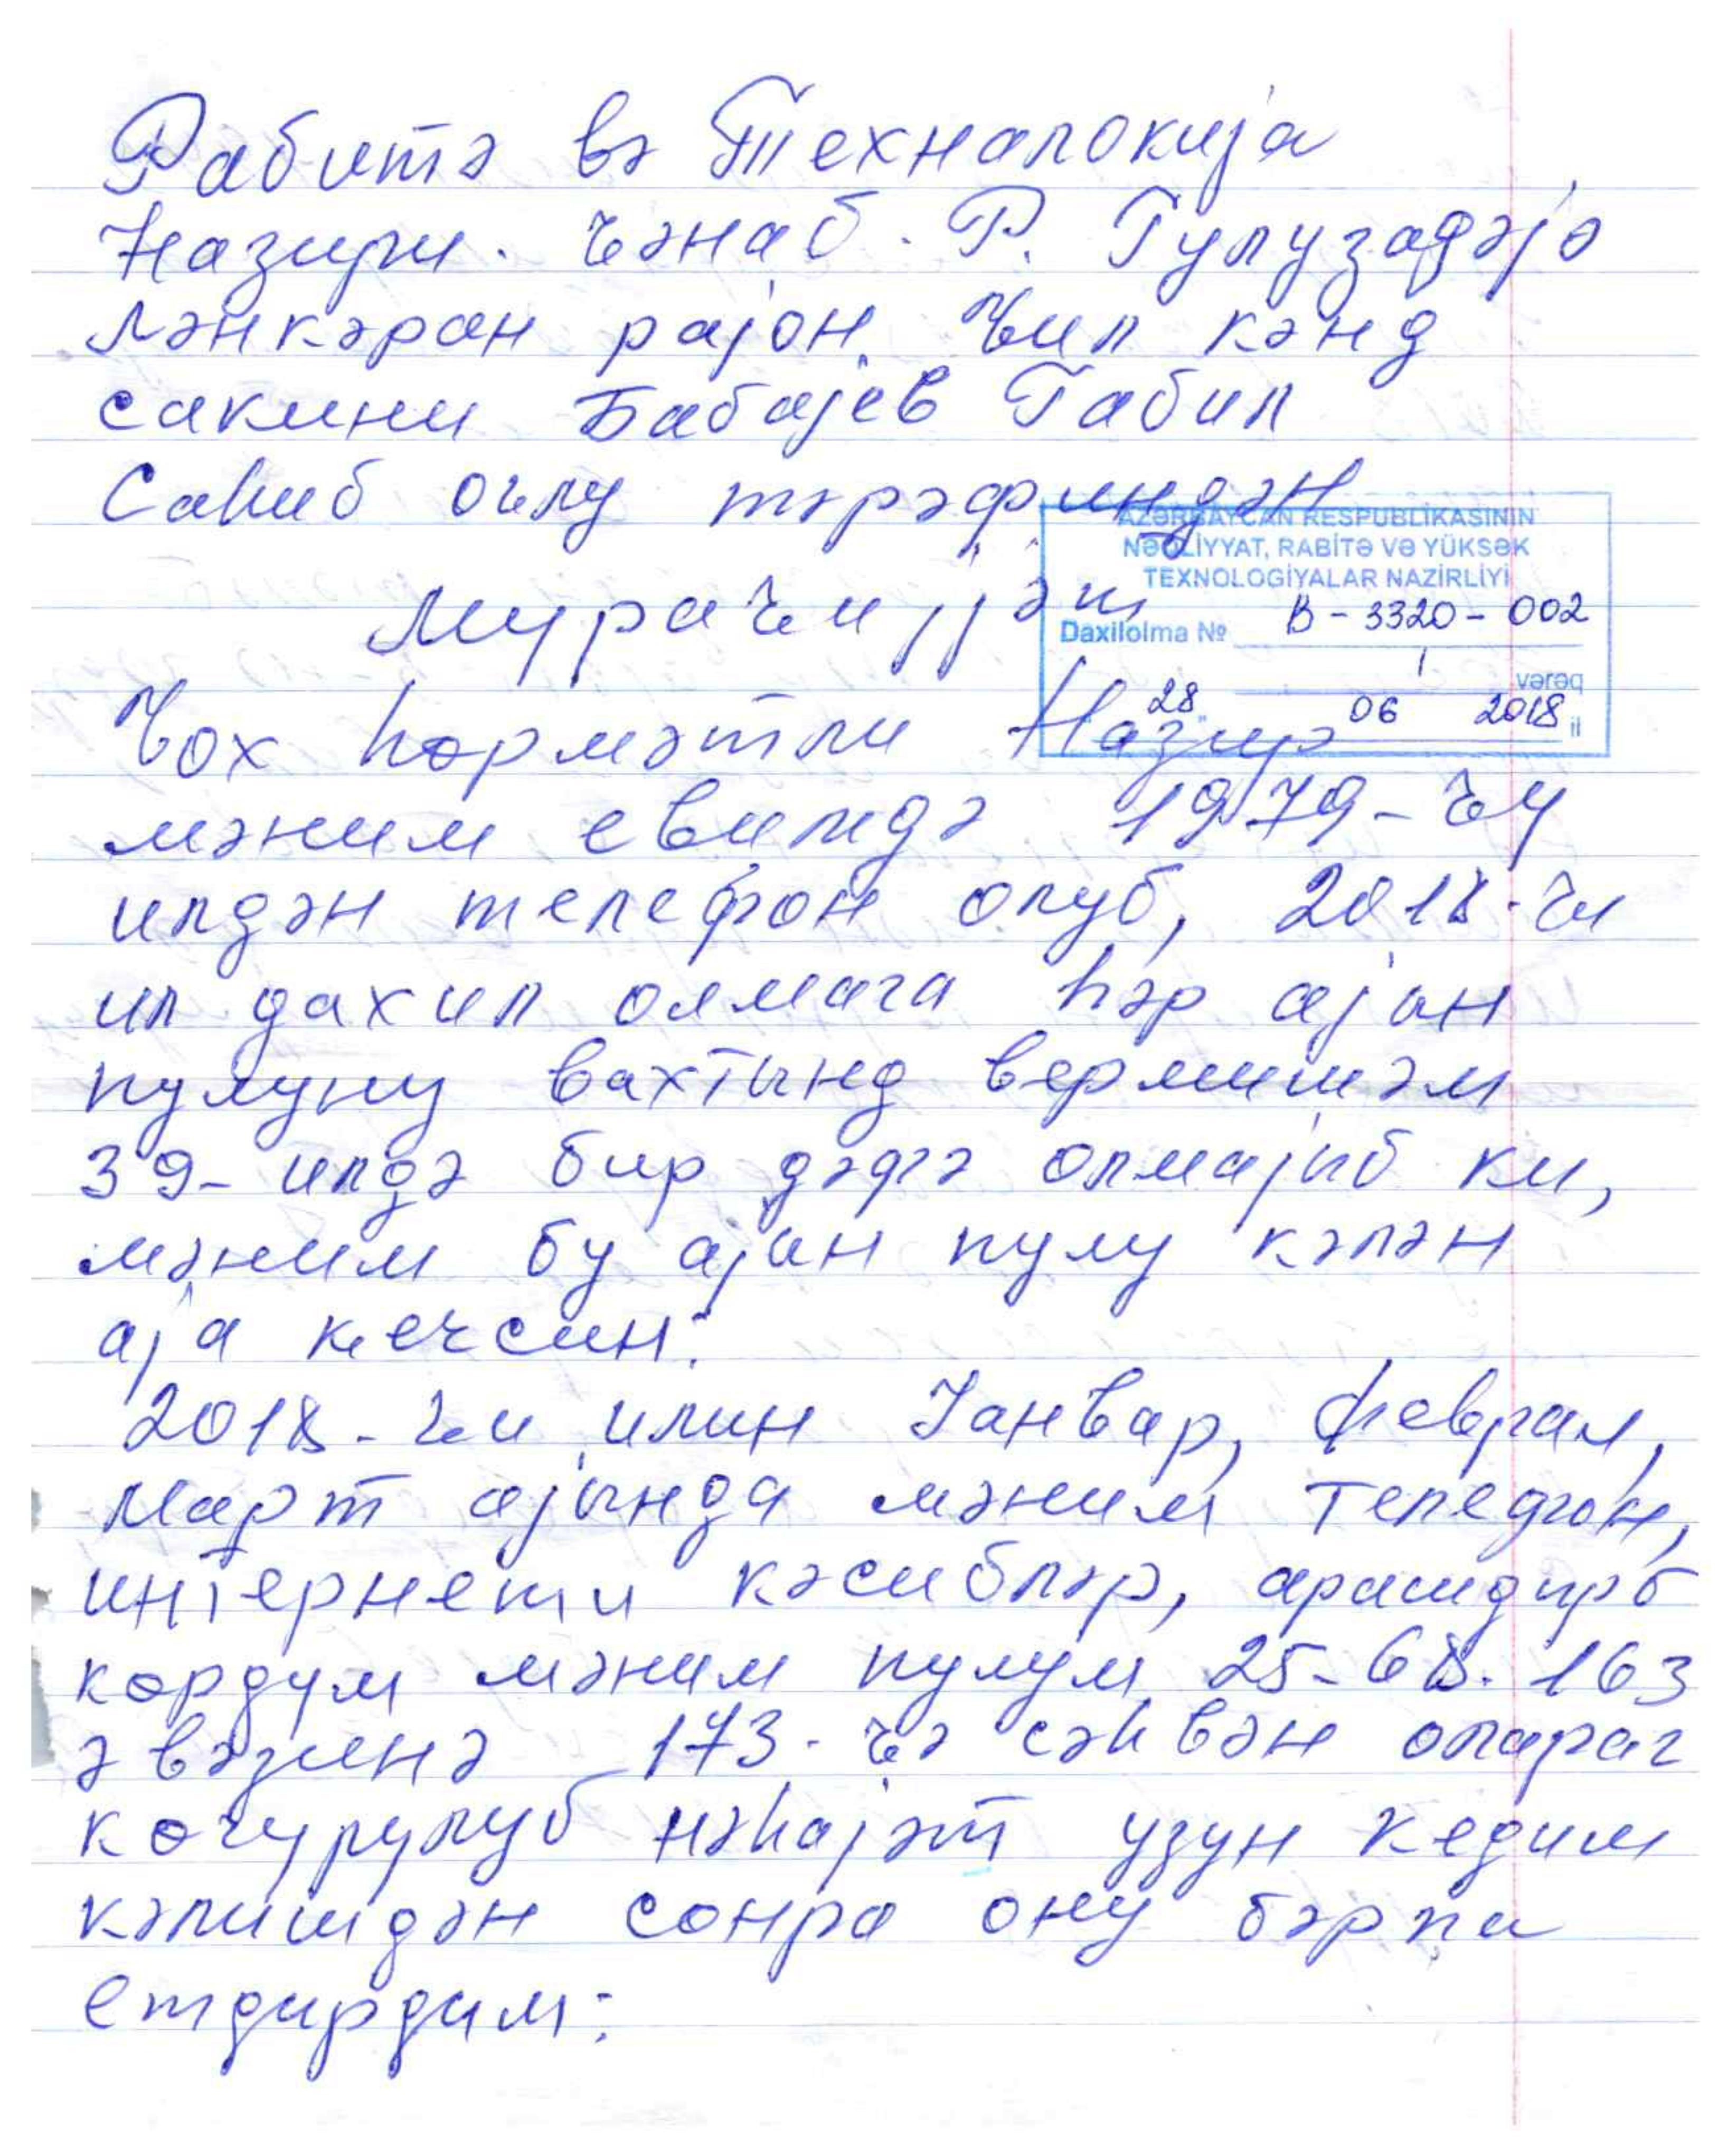 Рабитә вә Техналокија
Назири. Ҹәнаб. Р. Гулузадәјә
Ләнкәран рајон. Ҹил кәнд
сакини Бабајев Габил
Саһиб оғлу тәрәфиндән
AZƏRBAYCAN RESPUBLİKASININ
NƏQLİYYAT, RABİTƏ VƏ YÜKSƏK
TEXNOLOGİYALAR NAZİRLİYİ
Мураҹијјәт
Daxilolma № В-3320-002
1 vərəq
28 06 2018 il
Чох һөрмәтли Назир
мәним евимдә 1979-ҹу
илдән телефон олуб, 2018-ҹи
ил дахил олмага һәр ајын
пулуну вахтынд вермишәм
39-илдә бир дәфә олмајыб ки,
мәним бу ајын пулу кәлән
аја кечсин.
2018-ҹи илин Јанвар, феврал,
Март ајында мәним телефон,
интернети кәсибләр, арашдирб
көрдүм мәним пулум 25-68-163
әвәзинә 173-ҹә сәһвән олараг
көчурулуб нәһајәт узун кедим
кәлишдән сонра ону бәрпа
етдирдим: